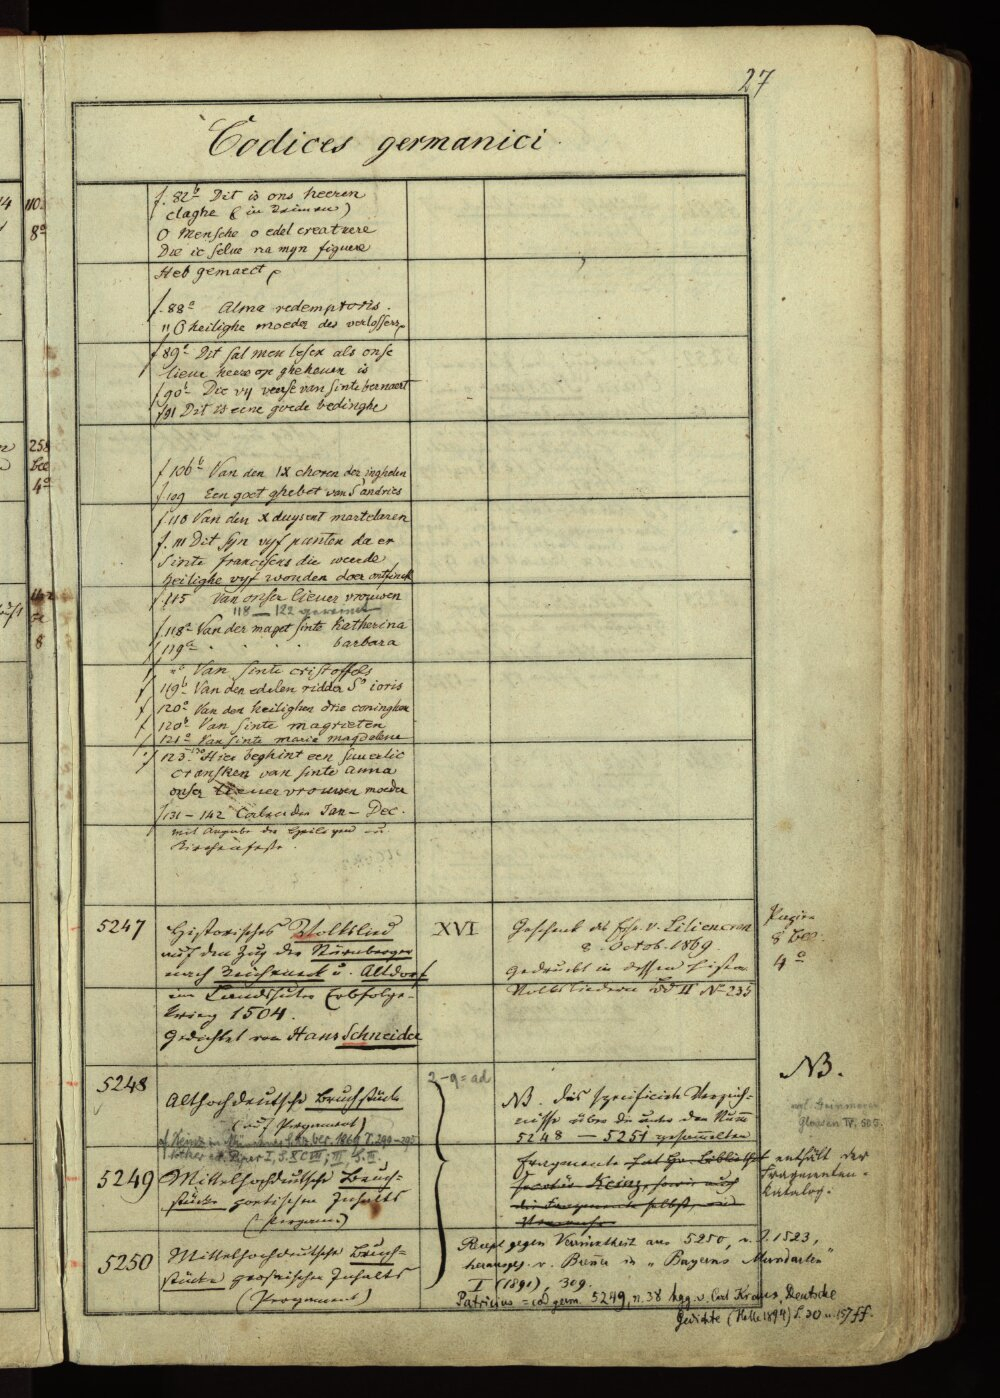 27
Codices germanici
f. 82b Dit is ons heeren
claghe (in Reimen)
O Mensche o edel creatuere
Die ic selue na myn figuere
Heb gemaect
f. 88a Alma redemptoris.
O heilighe moeder des verlossers
f 89a Dit sal men lesen als onse
lieue heere op gheheuen is
f 90b Die vij verse van sinte bernaert
f 91 Dit is eene goede bedinghe
f 106b Van den IX choren der inghelen
f 109 Een goet ghebet van S andries
f 110 Van den X duysent martelaren
f. 111 Dit sijn vyf punten da er
Sinte franciscus die weerde
heilighe vyf wonden door ontfinck
f 115 Van onser lieuer vrouwen
118 — 122 gereimt
f 118a Van der maget sinte Katherina
f 119a . . . . barbara
f "a Van sinte cristoffels
f 119b Van den edelen ridder So ioris
f 120a Van den heilighen drie coninghen
f 120b Van sinte magrieten
f 121a Van sinte marie magdalene
f 123 Hier beghint een suuerlic
cransken van sinte anna
onser lieuer vrouwen moeder
f 131 — 142 Calender Jan — Dec.
mit Angabe der Heiligen u.
Kirchenfeste.
5247
Historisches Volkslied
auf den Zug der Nürnberger
nach Reicheneck u. Altdorf
im Landshuter Erbfolge-
krieg 1504.
Gedichtet von Hans Schneider
XVI
Geschenk des Frh. v. Liliencron
8. Octob. 1869.
Gedruckt in dessen histor.
Volksliedern Bd II No 235
Papier
8 
4o
5248
Althochdeutsche Bruchstücke
(auf Pergament)
cf. Keinz in Münchner Sitz.ber. 1869 S. 290–295
5249
Mittelhochdeutsche Bruch-
stücke poetischen Inhalts
(Pergam.)
5250
Mittelhochdeutsche Bruch-
stücke prosaischen Inhalts
(Pergament)
2–9 = ad
NB. das specificirte Verzeich-
niss über die unter den Num
5248 — 5251 gesammelten
Fragmente hat Hr. Bibliothek
secretär Keinz, sowie auch
die Fragmente selbst, in
Verwahr.
NB.
Glossen IV, 505.
enthält der
Fragmenten-
katalog.
Recept gegen Vermietheit aus 5250, n. J. 1523,
herausgeg. v. Brenner in "Bayerns Mundarten"
I (1891), 309.
Patricius = cod germ. 5249, n. 38 hgg. v. Carl Kraus, Deutsche
Gedichte (Halle 1894) S. 30 u. 157 ff.
110
8o
258
4o
8